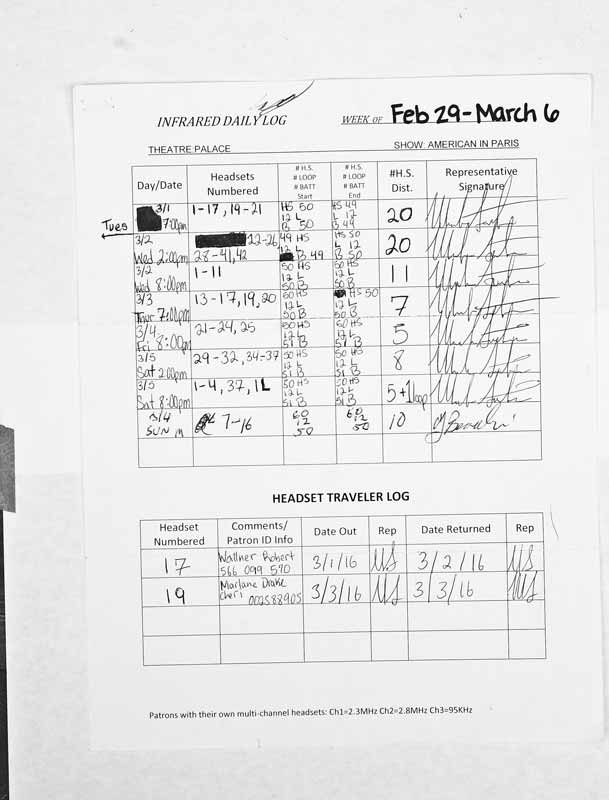 INFRARED DAILY LOG WEEK OF Feb 29-March 6
THEATRE PALACE SHOW: AMERICAN IN PARIS
Day/Date Headsets Numbered # H.S. # LOOP # BATT Start # H.S. # LOOP # BATT End #H.S. Dist. Representative Signature
Tues 3/1 7:00pm 1-17, 19-21 HS 50 12 L B 50 HS 49 L 12 B 49 20
3/2 Wed 2:00pm 22-26, 28-41, 42 49 HS 12 L B 49 HS 50 L 12 B 50 20
3/2 Wed 8:00pm 1-11 50 HS 12 L 50 B 50 HS 12 L 50 B 11
3/3 Thur 7:00pm 13-17, 19, 20 50 HS 12 L 50 B HS 50 12 L 50 B 7
3/4 Fri 8:00pm 21-24, 25 50 HS 12 L 51 B 50 HS 12 L 51 B 5
3/5 Sat 2:00pm 29-32, 34-37 50 HS 12 L 51 B 50 HS 12 L 51 B 8
3/5 Sat 8:00pm 1-4, 37, 1L 50 HS 12 L 51 B 50 HS 12 L 51 B 5+1loop
3/4 SUN m 7-16 60 12 50 60 12 50 10
HEADSET TRAVELER LOG
Headset Numbered Comments/ Patron ID Info Date Out Rep Date Returned Rep
17 Wallner Robert 566 099 570 3/1/16 MS 3/2/16 MS
19 Marlane Drake Cheri 002588905 3/3/16 MS 3/3/16 MS
Patrons with their own multi-channel headsets: Ch1=2.3MHz Ch2=2.8MHz Ch3=95KHz